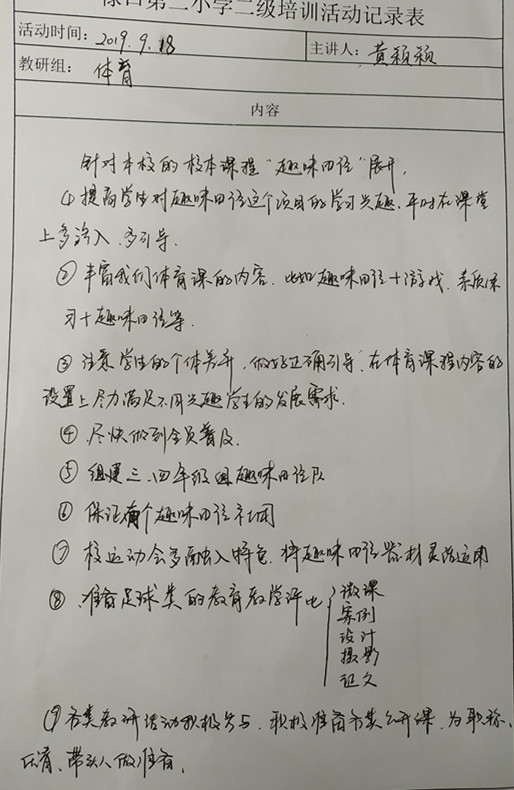 第二小学二级培训活动记录表
活动时间: 2019.9.18
主讲人: 黄颖颖
教研组: 体育
内容
针对本校的校本课程“趣味田径”展开,
① 提高学生对趣味田径这个项目的学习兴趣.平时在课堂
上多渗入、多引导.
② 丰富我们体育课的内容.比如趣味田径十游戏.素质练
习十趣味田径等.
③ 注意学生的个体差异,做好正确引导、在体育课程内容的
设置上尽力满足不同兴趣学生的发展需求.
④ 尽快做到全员普及.
⑤ 组建三、四年级组趣味田径队
⑥ 保证有个趣味田径社团
⑦ 校运动会多融入特色.将趣味田径器材灵活运用
⑧ 准备足球类的教育教学评比
微课
案例
设计
摄影
论文
⑨各类教研活动积极参与.积极准备各类公开课,为职称、
乐清、带头人做准备.